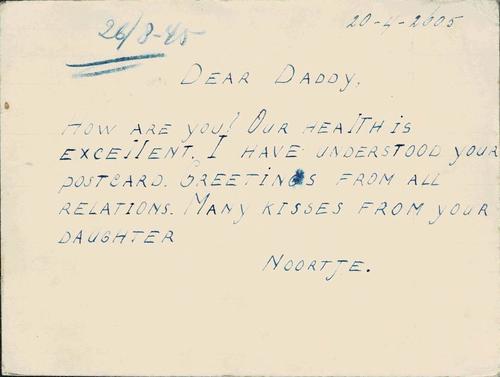 20-4-2605
26/8-45
DEAR DADDY,
HOW ARE YOU! OUR HEALTH IS
EXCELLENT. I HAVE UNDERSTOOD YOUR
POSTCARD. GREETINGS FROM ALL
RELATIONS. MANY KISSES FROM YOUR
DAUGHTER
NOORTJE.